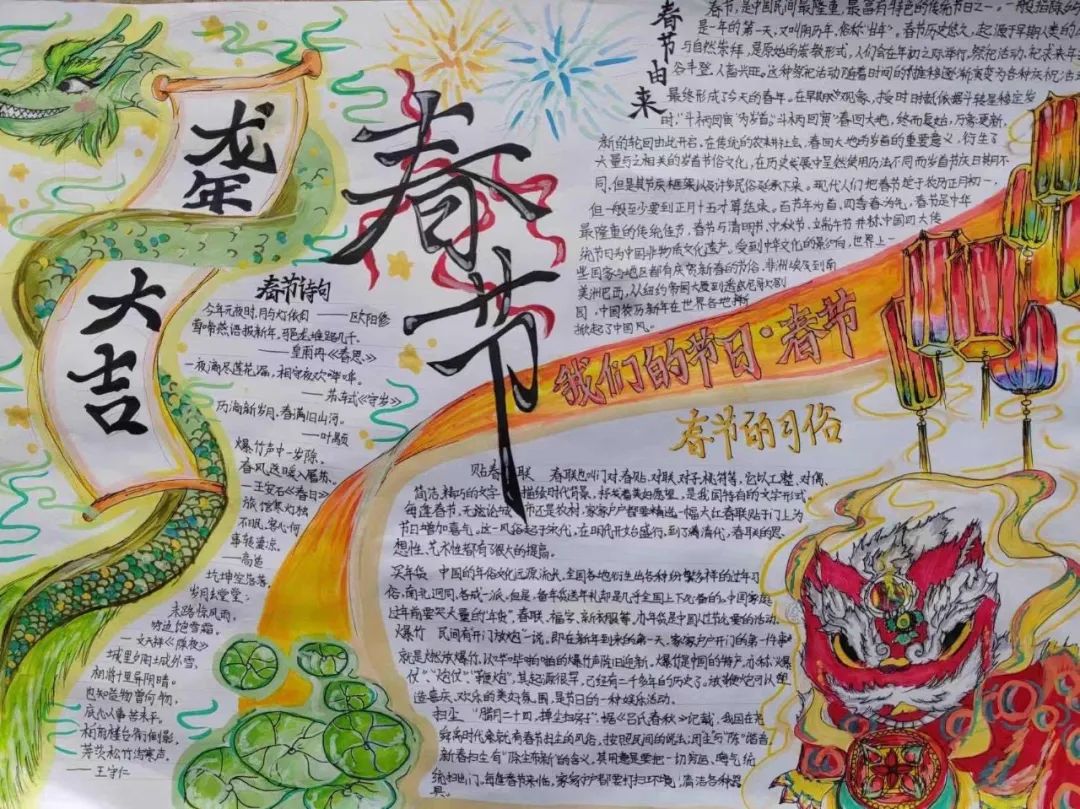 龙年
大吉
春节
春节诗句
今年元夜时,月与灯依旧 ——欧阳修
莺啼燕语报新年,马邑龙堆路几千。
——皇甫冉《春思》
一夜满尽莲花漏,相守夜欢哗。
——苏轼《守岁》
历添新岁月,春满旧山河。
——叶颙
爆竹声中一岁除,
春风送暖入屠苏。
—王安石《春日》
旅馆寒灯独
不眠,客心何
事转凄凉。
——高适
乾坤空落落,
岁月去堂堂;
末路惊风雨,
穷边饱雪霜。
—文天祥《除夜》
城里夕阳城外雪,
相将十里异阴晴。
也知造物曾何物,
底是人事苦未平。
柏府楼台衔倒影,
茅茨松竹泻寒声。
——王守仁
春节由来
春节,是中国民间最隆重、最富有特色的传统节日之一。一般指除夕
是一年的第一天,又叫阴历年,俗称"过年"。春节历史悠久,起源于早期人类的
与自然崇拜,是原始的宗教形式,人们会在年初之际举行祭祀活动,祈求来年
谷丰登、人畜兴旺。这种祭祀活动随着时间的推移逐渐演变为各种庆祝活
最终形成了今天的春年。在早期观象,按时时代依据斗转星移定岁
时,"斗柄回寅"为岁首。"斗柄回寅"春回大地,终而复始,万象更新,
新的轮回由此开启。在传统的农耕社会,春回大地的岁首的重要意义,衍生了
大量与之相关的岁首节俗文化,在历史发展中虽然使用历法不同而岁首节庆日期不
同,但是其节庆框架以及许多民俗延承下来。现代人们把春节定于农历正月初一,
但一般至少要到正月十五才算结束。百节年为首,四季春为先,春节是中华
最隆重的传统佳节。春节与清明节、中秋节、端午节并称中国四大传
统节日与中国非物质文化遗产。受到中华文化的影响,世界上一
些国家与地区都有庆贺新春的节俗。非洲埃及到南
美洲巴西,从纽约帝国大厦到悉尼歌剧
园,中国农历新年在世界各地
掀起了中国风。
我们的节日·春节
春节的习俗
贴春联 春联也叫门对、春贴、对联、对子、桃符等,它以工整、对偶、
简洁、精巧的文字描绘时代背景、抒发着美好愿望,是我国特有的文学形式。
每逢春节,无论城市还是农村,家家户户都要精选一幅大红春联贴于门上为
节日增加喜气。这一风俗起于宋代,在明代开始盛行,到了清代,春联的思
想性、艺术性都有了很大的提高。
买年货 中国的年俗文化远源流长,全国各地衍生出各种纷繁多样的过年习
俗,南北迥同,各成一派。但是,备年货送年礼却是几乎全国上下必备的。中国家庭
过年前要买大量的"年货",春联、福字、新衣服等,办年货是中国人过节必要的活动。
爆竹 民间有开门放炮一说,即在新年到来的第一天,家家户户开门的第一件事
就是燃放爆竹,以哔哔啪啪的爆竹声除旧迎新。爆竹是中国的特产,亦称"爆
仗"、"炮仗"、"鞭炮"。其起源很早,已经有二千多年的历史了。放鞭炮可以塑
造喜庆、欢欣的美好氛围,是节日的一种娱乐活动。
扫尘 "腊月二十四,掸尘扫房子",据《吕氏春秋》记载,我国在尧
舜禹时代象就有春节扫尘的风俗,按照民间的说法:因尘与"陈"谐音,
新春扫尘有"除尘布新"的含义,其用意是要把一切穷运、晦气统
统扫出门。每逢春节来临,家家户户都要打扫环境,清洁各种器
具。